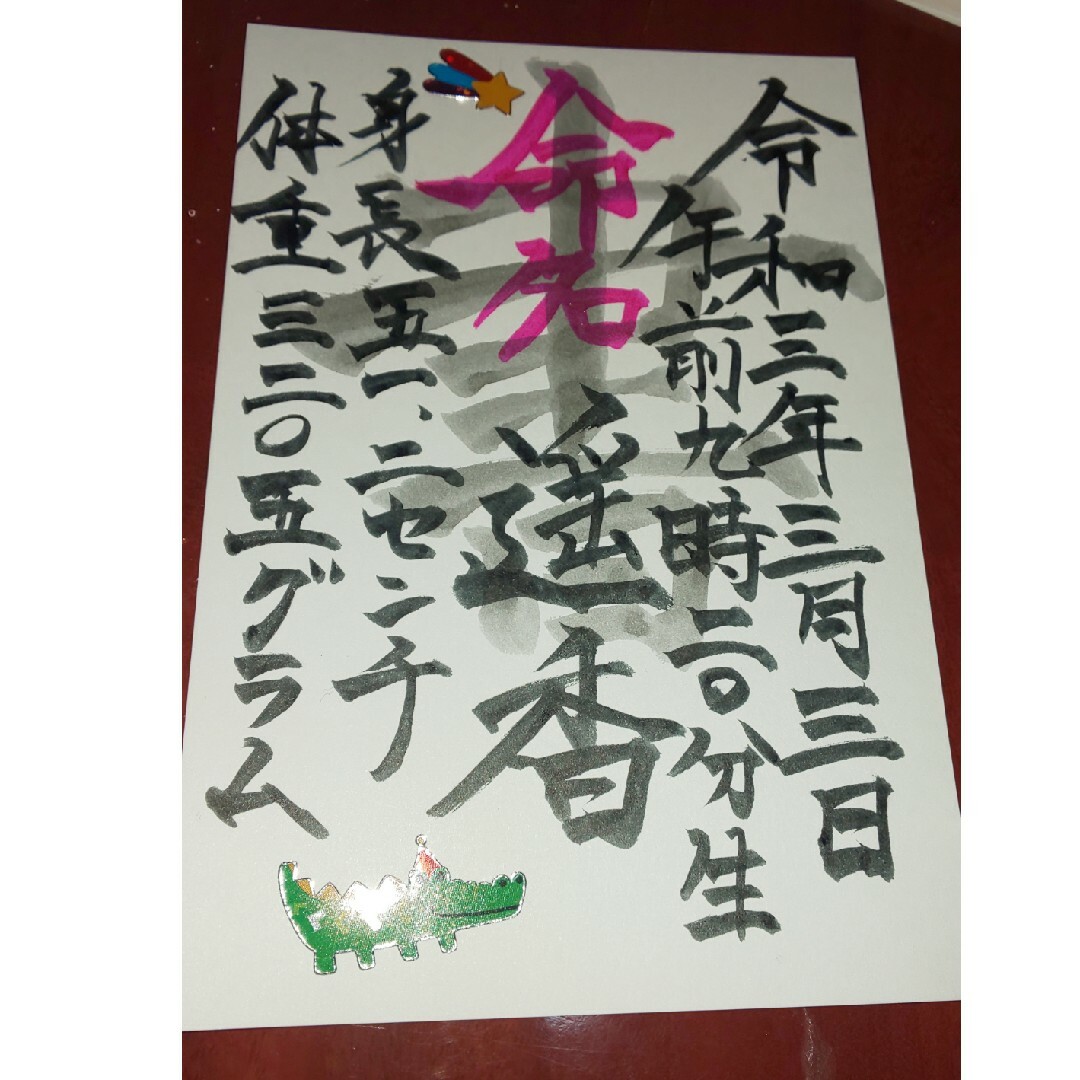 令和三年三月三日
午前九時二〇分生
命名
遥香
身長五一、二センチ
体重三二〇五グラム